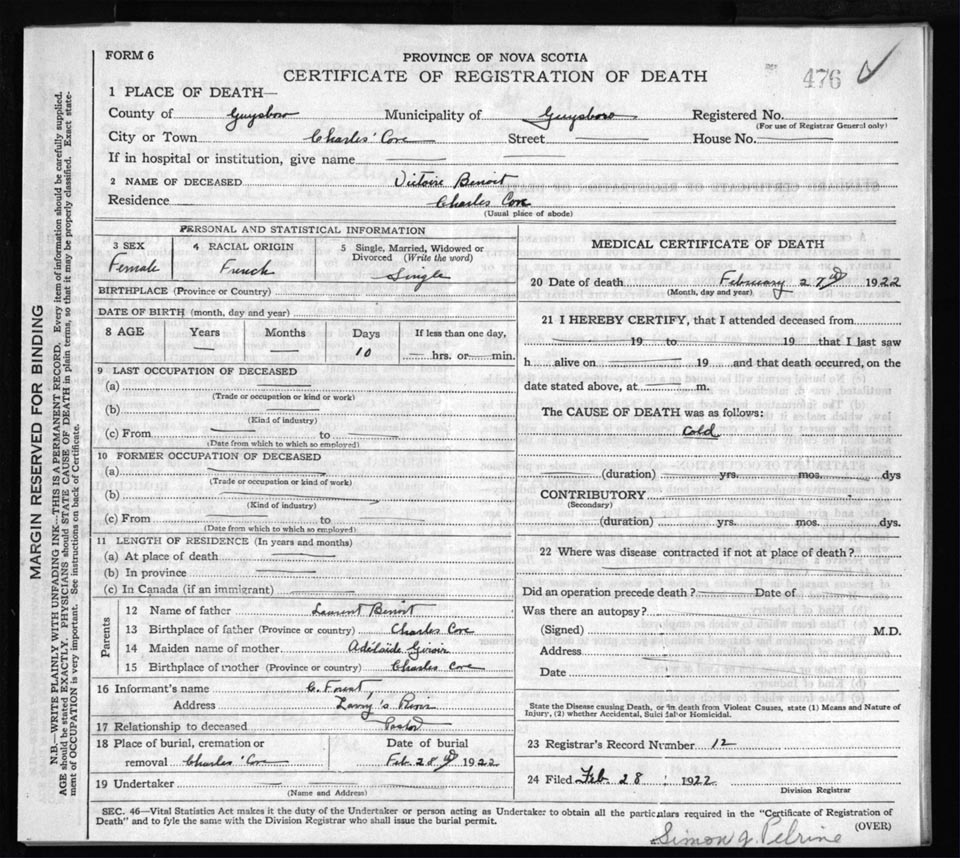 FORM 6
PROVINCE OF NOVA SCOTIA
CERTIFICATE OF REGISTRATION OF DEATH
476
1 PLACE OF DEATH—
County of Guysboro Municipality of Guysboro Registered No.
(For use of Registrar General only)
City or Town Charles' Cove Street House No.
If in hospital or institution, give name
2 NAME OF DECEASED Victoire Benoit
Residence Charles Cove
(Usual place of abode)
PERSONAL AND STATISTICAL INFORMATION
3 SEX 4 RACIAL ORIGIN 5 Single, Married, Widowed or Divorced (Write the word)
Female French Single
BIRTHPLACE (Province or Country)
DATE OF BIRTH (month, day and year)
8 AGE Years Months Days If less than one day,
— — 10 hrs. or min.
9 LAST OCCUPATION OF DECEASED
(a)
(Trade or occupation or kind or work)
(b)
(Kind of industry)
(c) From to
(Date from which to which so employed)
10 FORMER OCCUPATION OF DECEASED
(a)
(Trade or occupation or kind of work)
(b)
(Kind of industry)
(c) From to
(Date from which to which so employed)
11 LENGTH OF RESIDENCE (In years and months)
(a) At place of death
(b) In province
(c) In Canada (if an immigrant)
Parents
12 Name of father Laurent Benoit
13 Birthplace of father (Province or country) Charles Cove
14 Maiden name of mother Adélaide Giroir
15 Birthplace of mother (Province or country) Charles Cove
16 Informant's name C. Forest,
Address Larry's River
17 Relationship to deceased Pastor
18 Place of burial, cremation or removal Charles' Cove
Date of burial Feb. 28th 1922
19 Undertaker
(Name and Address)
MEDICAL CERTIFICATE OF DEATH
20 Date of death February 27th 1922
(Month, day and year)
21 I HEREBY CERTIFY, that I attended deceased from
19 to 19 that I last saw
h alive on 19 and that death occurred, on the
date stated above, at m.
The CAUSE OF DEATH was as follows:
Cold
(duration) yrs. mos. dys
CONTRIBUTORY
(Secondary)
(duration) yrs. mos. dys.
22 Where was disease contracted if not at place of death?
Did an operation precede death? Date of
Was there an autopsy?
(Signed) M.D.
Address
Date
State the Disease causing Death, or in death from Violent Causes, state (1) Means and Nature of
Injury, (2) whether Accidental, Suicidal or Homicidal.
23 Registrar's Record Number 12
24 Filed Feb. 28 1922
Division Registrar
SEC. 46—Vital Statistics Act makes it the duty of the Undertaker or person acting as Undertaker to obtain all the particulars required in the "Certificate of Registration of
Death" and to fyle the same with the Division Registrar who shall issue the burial permit.
(OVER)
Simon J. Pelrine
MARGIN RESERVED FOR BINDING
N.B.—WRITE PLAINLY WITH UNFADING INK—THIS IS A PERMANENT RECORD. Every item of information should be carefully supplied.
AGE should be stated EXACTLY. PHYSICIANS should STATE CAUSE OF DEATH in plain terms, so that it may be properly classified. Exact state-
ment of OCCUPATION is very important. See instructions on back of Certificate.